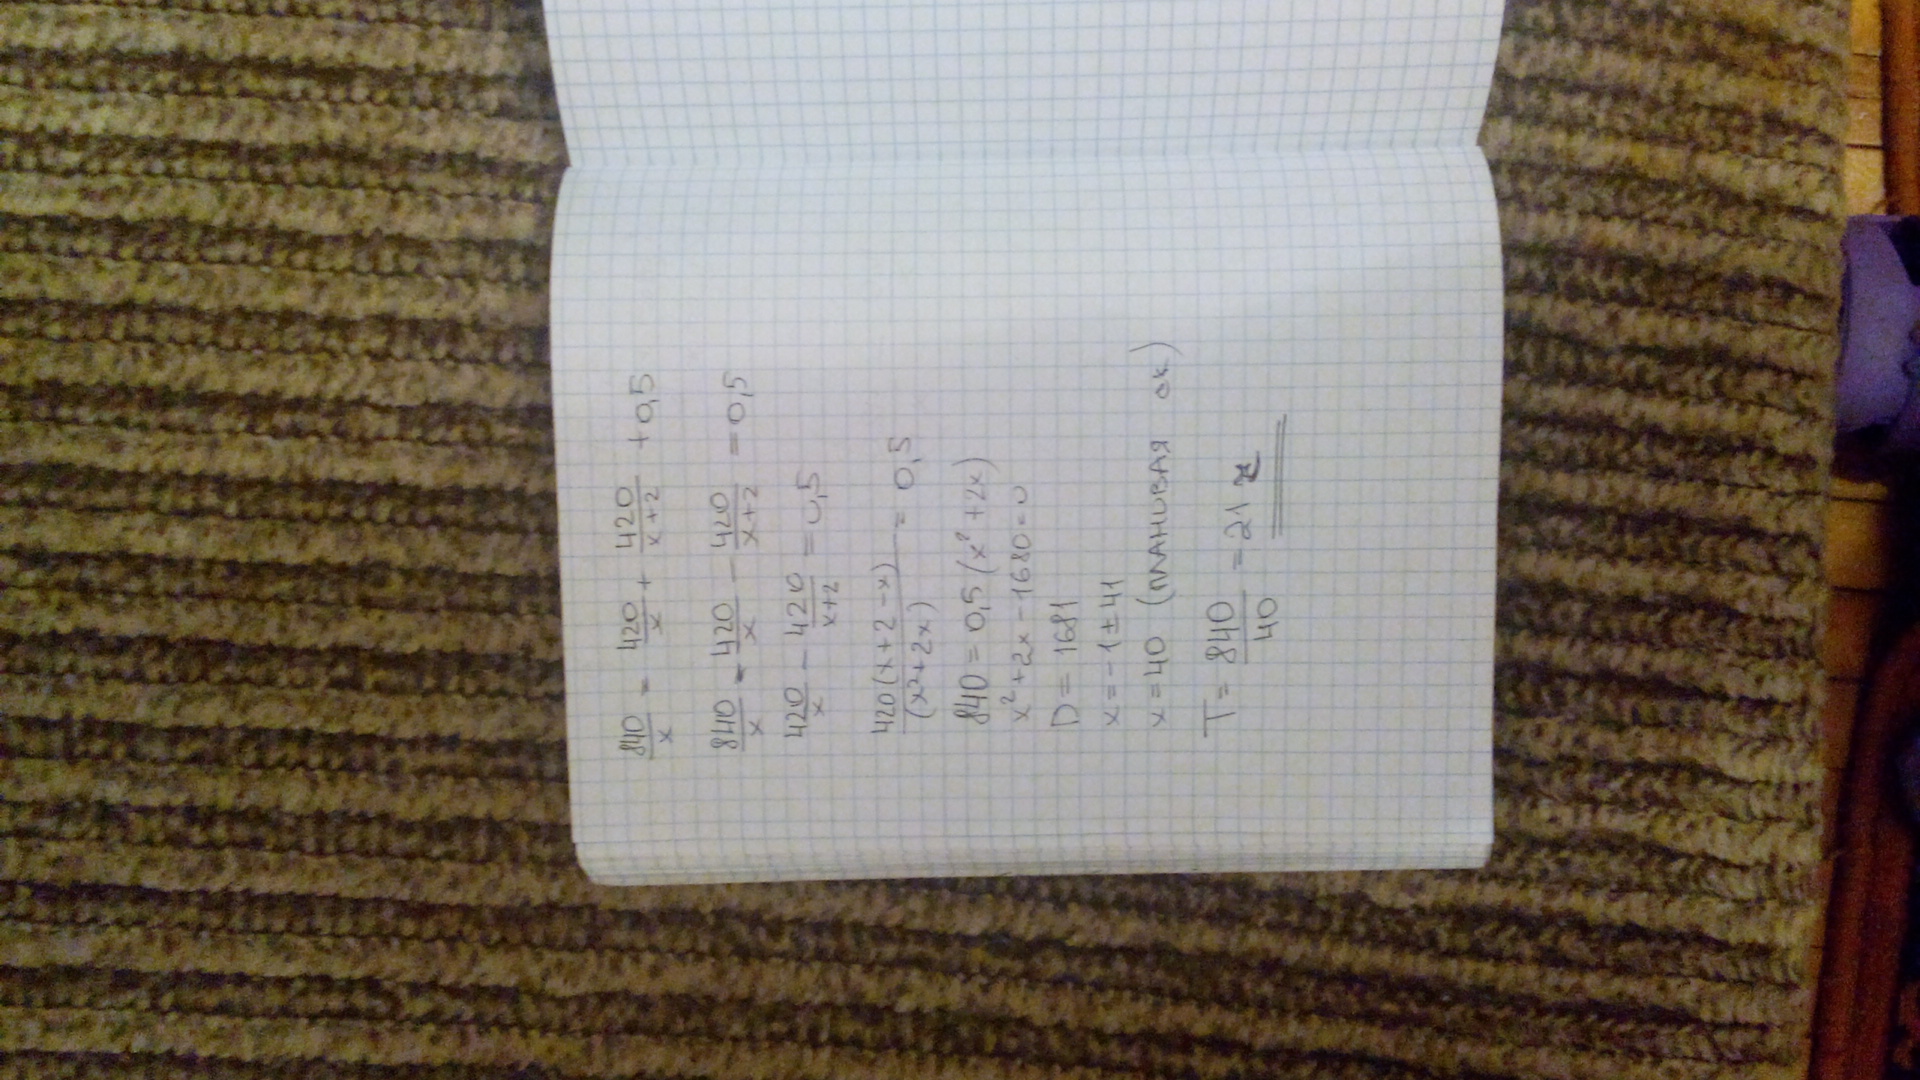 840/x = 420/x + 420/x+2 + 0,5
840/x - 420/x - 420/x+2 = 0,5
420/x - 420/x+2 = 0,5
420(x+2-x)/(x²+2x) = 0,5
840 = 0,5(x²+2x)
x²+2x-1680=0
D = 1681
x = -1±41
x=40 (ПЛАНОВАЯ ск.)
T = 840/40 = 21 ч